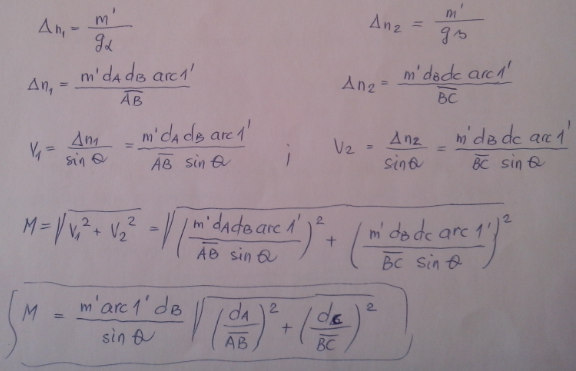 Δn₁ = m' / g₂   Δn₂ = m' / g₃
Δn₁ = m' dA dB arc 1' / A̅B̅   Δn₂ = m' dB dc arc 1' / B̅C̅
V₁ = Δn₁ / sin Q = m' dA dB arc 1' / A̅B̅ sin Q ; V₂ = Δn₂ / sin Q = m' dB dc arc 1' / B̅C̅ sin Q
M = √(V₁² + V₂²) = √((m' dA dB arc 1' / A̅B̅ sin Q)² + (m' dB dc arc 1' / B̅C̅ sin Q)²)
M = m' arc 1' dB / sin Q √((dA / A̅B̅)² + (dc / B̅C̅)²)